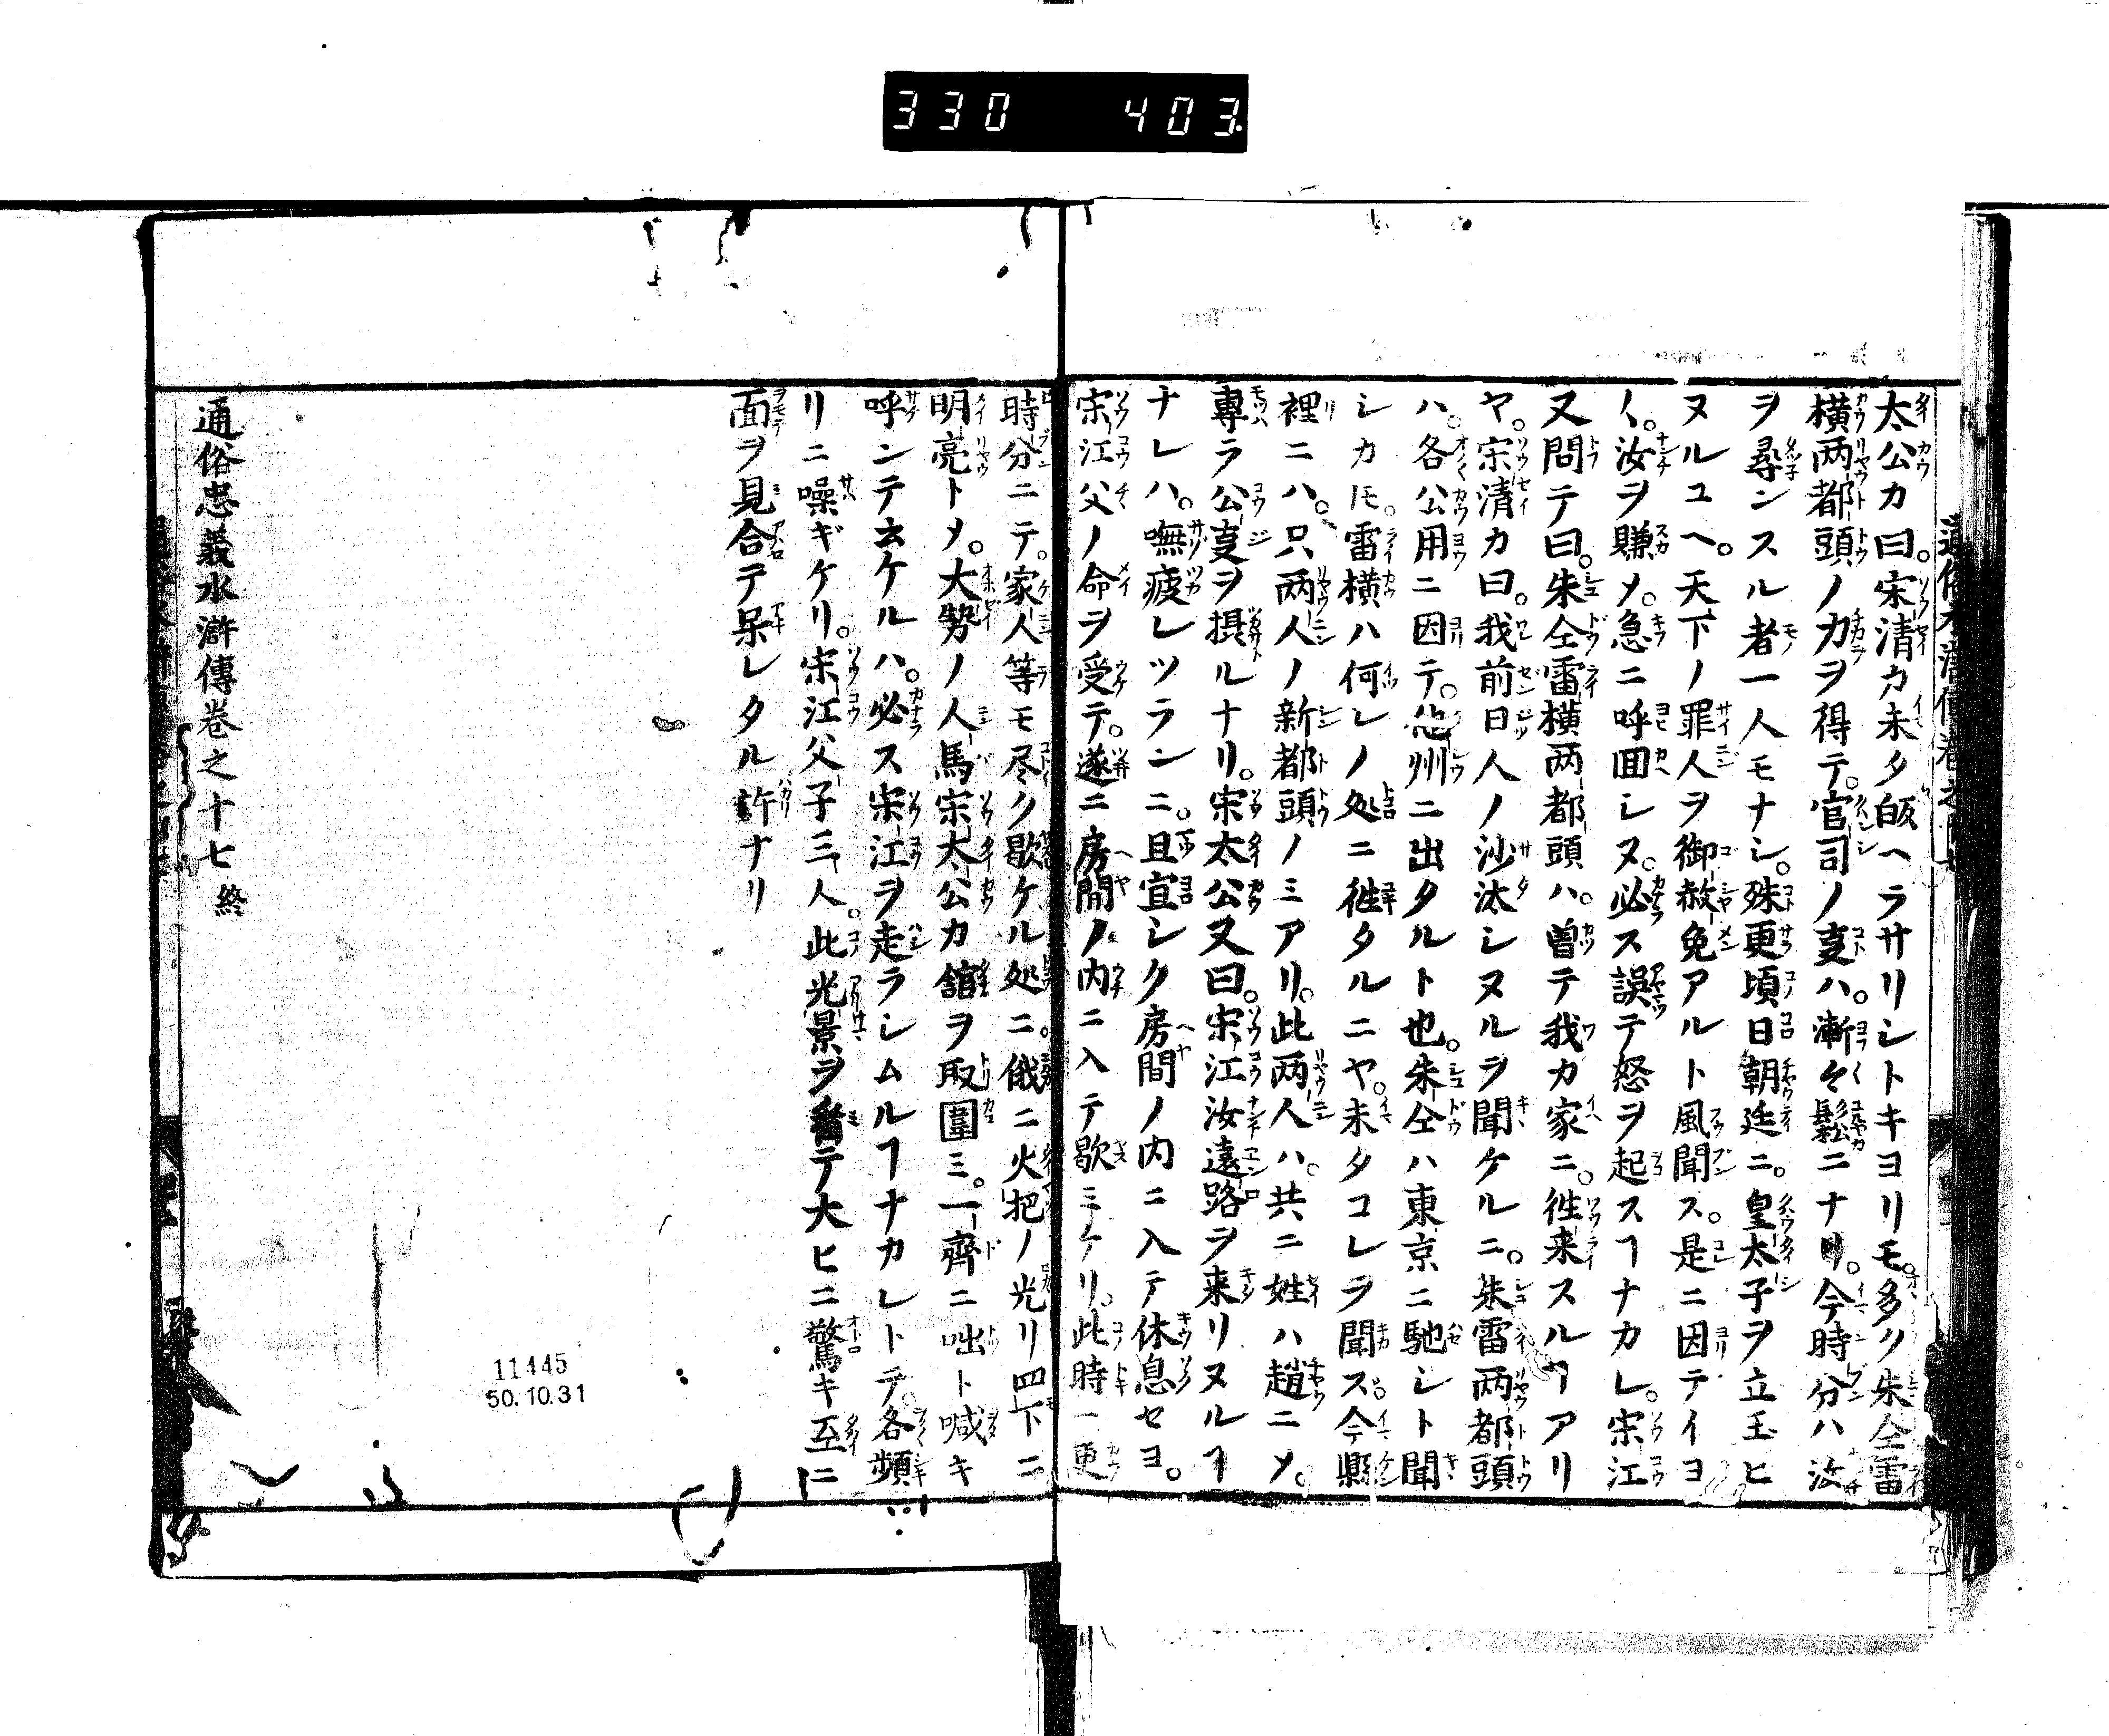 330 403
太公カ曰。宋清カ未タ皈ヘラサリシトキヨリモ。多ク朱仝雷
横両都頭ノ力ヲ得テ。官司ノ亊ハ。漸々鬆ニナリ。今時分ハ汝
ヲ尋ンスル者一人モナシ。殊更頃日朝廷ニ。皇太子ヲ立玉ヒ
ヌルユヘ。天下ノ罪人ヲ御赦免アルト風聞ス。是ニ因テイヨ
〱。汝ヲ賺メ。急ニ呼囬シヌ。必ス誤テ怒ヲ起スヿナカレ。宋江
又問テ曰。朱仝雷横两都頭ハ。曽テ我カ家ニ。徃来スルヿアリ
ヤ。宋清カ曰。我前日人ノ沙汰シヌルヲ聞ケルニ。朱雷两都頭
ハ。各公用ニ因テ。他州ニ出タルト也。朱仝ハ東京ニ馳シト聞
シカ𪜈。雷横ハ何レノ処ニ徃タルニヤ。未タコレヲ聞ス。今縣
裡ニハ。只两人ノ新都頭ノミアリ。此两人ハ。共ニ姓ハ趙ニメ。
專ラ公亊ヲ摂ルナリ。宋太公又曰。宋江汝遠路ヲ来リヌルヿ
ナレハ。嘸疲レツランニ。且宜シク房間ノ内ニ入テ休息セヨ。
宋江父ノ命ヲ受テ。遂ニ房間ノ内ニ入テ歇ミケリ。此時一更
時分ニテ。家人等モ尽ク歇ケル処ニ。俄ニ火把ノ光リ四下ニ
明亮トメ。大勢ノ人馬宋太公カ舘ヲ取圍ミ。一齊ニ咄ト喊キ
呼ンテ云ケルハ。必ス宋江ヲ走ラシムルヿナカレトテ。各頻
リニ噪ギケリ。宋江父子三人。此光景ヲ看テ大ヒニ驚キ至ニ
面ヲ見合テ呆レタル許ナリ
通俗忠義水滸傳巻之十七終
11445
50.10.31